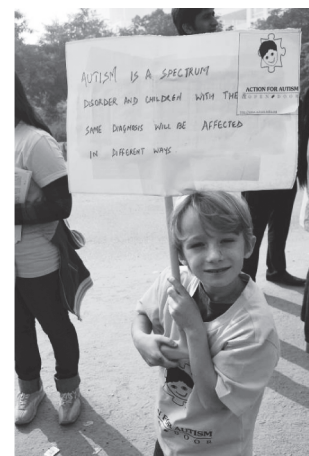 AUTISM IS A SPECTRUM
DISORDER AND CHILDREN WITH THE
SAME DIAGNOSIS WILL BE AFFECTED
IN DIFFERENT WAYS
ACTION FOR AUTISM
FOR AUTISM